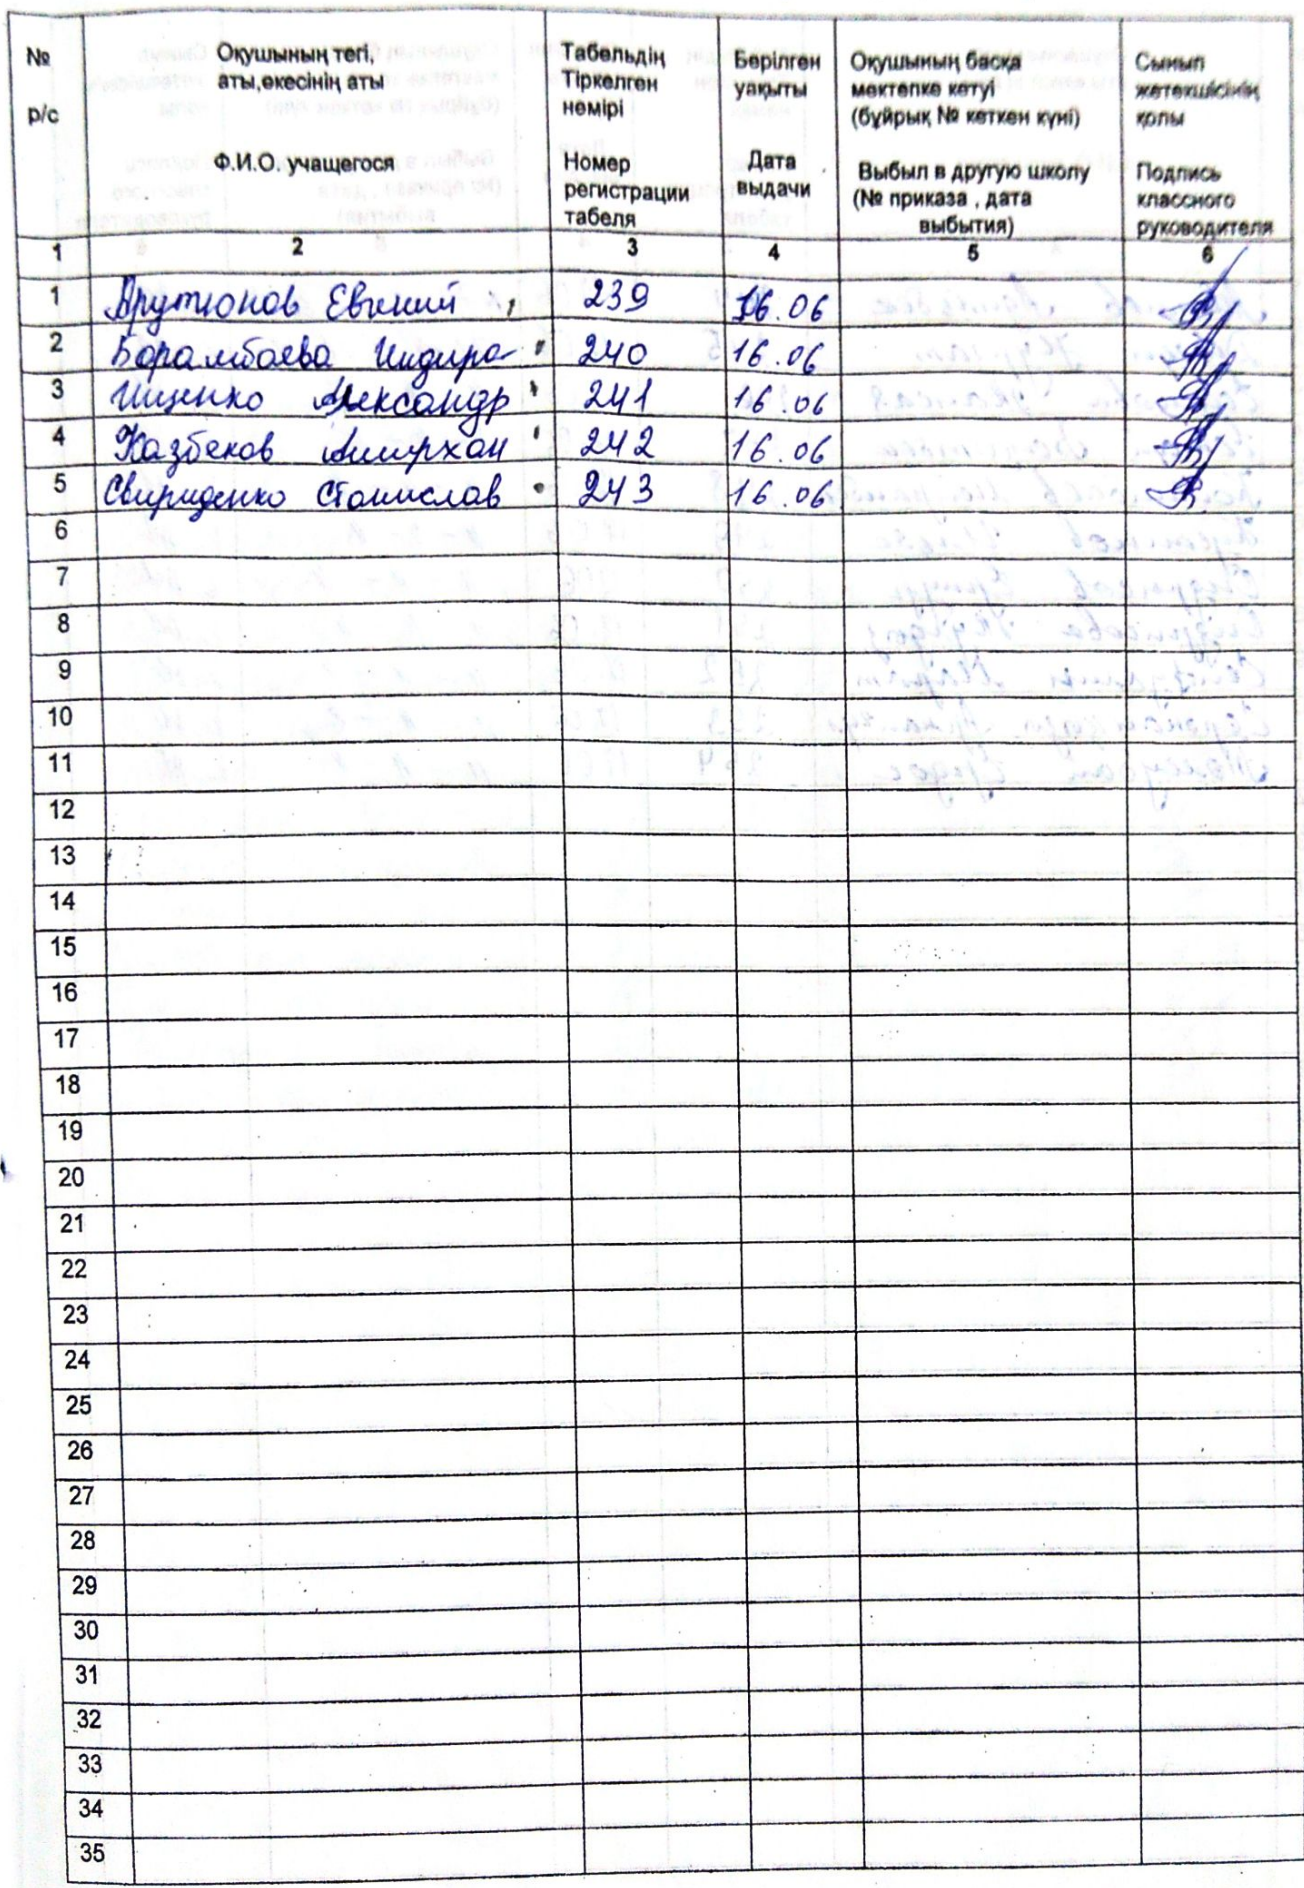 № р/с | Оқушының тегі, аты,әкесінің аты Ф.И.О. учащегося | Табельдің Тіркелген нөмірі Номер регистрации табеля | Берілген уақыты Дата выдачи | Оқушының басқа мектепке кетуі (бұйрық № кеткен күні) Выбыл в другую школу (№ приказа , дата выбытия) | Сынып жетекшісінің қолы Подпись классного руководителя
1 2 3 4 5 6
1 Арутюнов Евгений 239 16.06
2 Борамбаева Индира 240 16.06
3 Ищенко Александр 241 16.06
4 Казбеков Амирхан 242 16.06
5 Свириденко Станислав 243 16.06
6
7
8
9
10
11
12
13
14
15
16
17
18
19
20
21
22
23
24
25
26
27
28
29
30
31
32
33
34
35